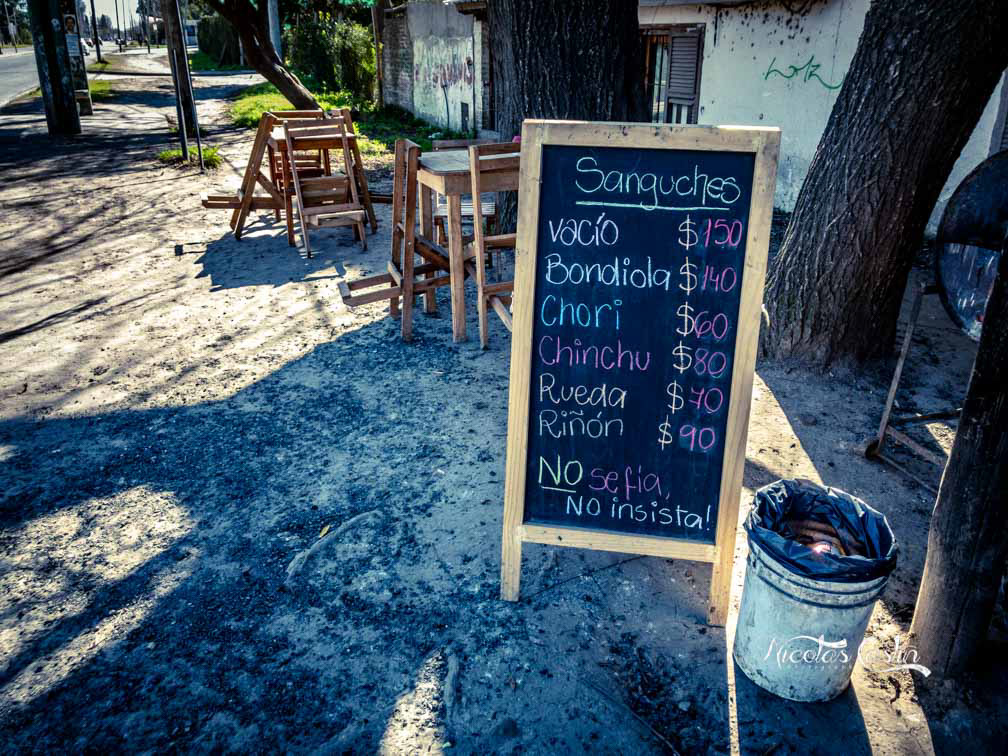 Sanguches
vacío $150
Bondiola $140
Chori $60
Chinchu $80
Rueda $70
Riñón $90
NO se fía,
NO insista!
Nicolas